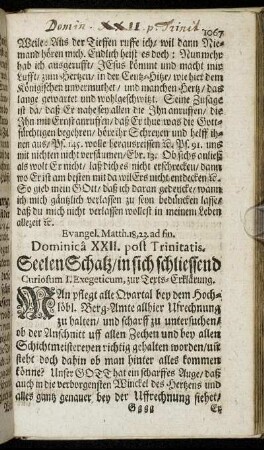 Domin. XXII. p. Trinit. 1067
Weile: Aus der Tieffen ruffe ich/ wil dann Nie-
mand hören mich. Endlich heist es doch: Nun
hab ich ausgerufft/ JEsus kömmt und macht mir
Lufft/ zum Hertzen/ in der Centz-Hitze/ wie hier dem
Königischen unvermuthet/ und manchen Hertz/ das
lange gewartet und wohl geschwitzt. Seine Zusage
ist da/ daß Er nahe sey allen die Ihn anruffen/ die
Ihn mit Ernst anruffen/ daß Er thue was die Gott-
fürchtigen begehren/ höre ihr Schreyen und helff ih-
nen aus/ Ps. 145. wolle herausreissen &c. Ps. 91. uns
mit nichten nicht versäumen/ Ebr. 13. Ob sichs anließ
als wolt Er nicht/ laß dich es nicht erschrecken/ dann
wo Er ist am besten mit da wil Ers nicht entdecken &c.
So gieb mein GOtt/ daß ich daran gedencke/ wann
ich mich gäntzlich verlassen zu seyn bedüncken lasse/
daß du mich nicht verlassen wollest in meinem Leben
allezeit &c.
Evangel. Matth. 18, 23. ad fin.
Dominicâ XXII. post Trinitatis.
Seelen Schatz/ in sich schliessend
Curiosum I. Exegeticum, zur Texts-Erklärung.
MAn pflegt alle Qvartal bey dem Hoch-
löbl. Berg-Amte allhier Uffrechnung
zu halten/ und scharff zu untersuchen/
ob der Anschnitt uff allen Zechen und bey allen
Schichtmeistereyen richtig gehalten worden/ uñ
steht doch dahin ob man hinter alles kommen
könne? Unser GOTT hat ein scharffes Auge/ daß
auch in die verborgensten Winckel des Hertzens und
alles gantz genauer bey der Uffrechnung siehet/
Gggg Er